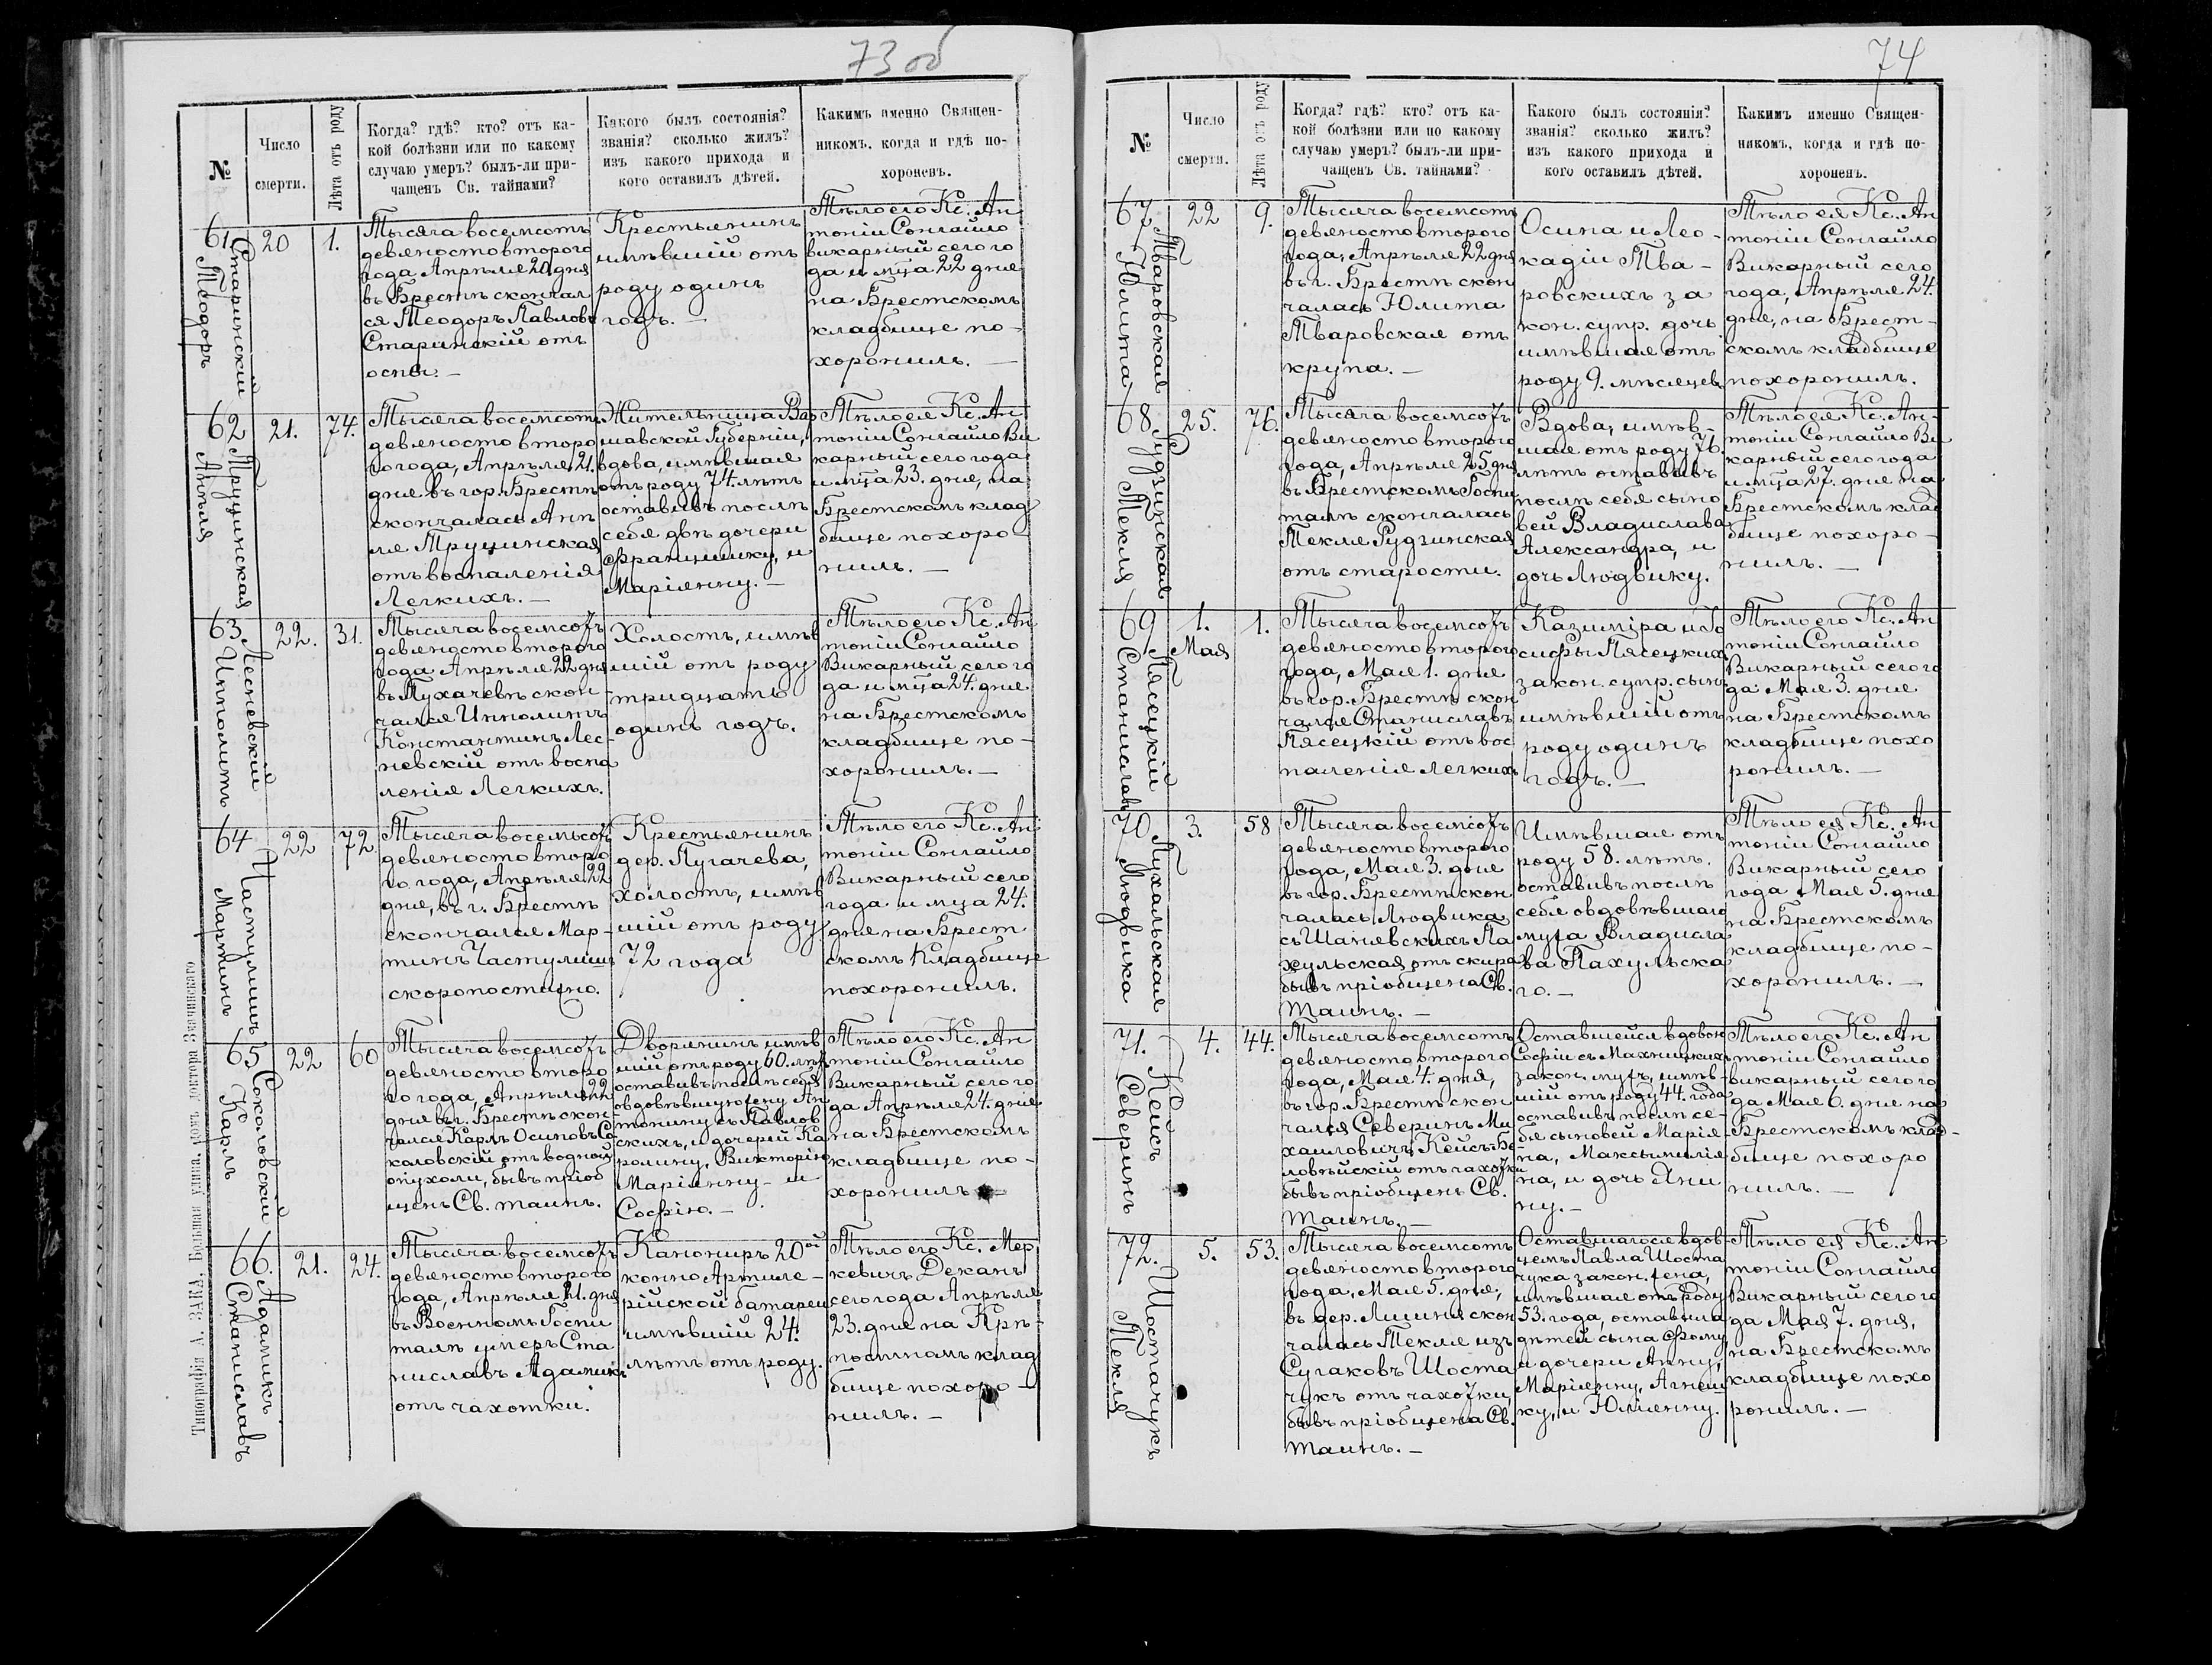 73 об
№
Число
смерти.
Лѣта отъ роду
Когда? гдѣ? кто? отъ ка-
кой болѣзни или по какому
случаю умеръ? былъ-ли при-
чащенъ Св. тайнами?
Какого былъ состоянія?
званія? сколько жилъ?
изъ какого прихода и
кого оставилъ дѣтей.
Какимъ именно Священ-
никомъ, когда и гдѣ по-
хороненъ.
61
Старинскій
Теодоръ
20
1.
Тысяча восемсотъ
девяносто второго
года Апрѣля 20 дня
въ Брестѣ скончал
ся Теодоръ Павловъ
Старинскій отъ
оспы. —
Крестьянинъ
имѣвшій отъ
роду одинъ
годъ. —
Тѣло его Кс. Ан
тоній Сонгайло
викарный сего го
да и мца 22 дня
на Брестскомъ
кладбище по-
хоронилъ. —
62
Трущинская
Анѣля
21.
74.
Тысяча восемсотъ
девяносто второ
го года, Апрѣля 21.
дня въ гор. Брестѣ
скончалась Анѣ
ля Трущинская
отъ воспаленія
Легкихъ. —
Жительница Вар
шавской Губерніи,
вдова, имѣвшая
отъ роду 74. лѣтъ
оставивъ послѣ
себя двѣ дочери
Францишку, и
Маріянну. —
Тѣло ея Кс. Ан
тоній Сонгайло Ви
карный сего года
и мца 23. дня, на
Брестскомъ клад
бище похоро
нилъ. —
63
Лесневскій
Ипполитъ
22.
31.
Тысяча восемсотъ
девяносто второго
года Апрѣля 22 дня
въ Тухачевѣ скон-
чался Ипполитъ
Константинъ Лес-
невскій отъ воспа
ленія Легкихъ.
Холостъ, имѣв
шій отъ роду
тридцать
одинъ годъ.
Тѣло его Кс. Ан
тоній Сонгайло
Викарный сего го
да и мца 24. дня
на Брестскомъ
кладбище по-
хоронилъ. —
64
Частулишъ
Мартинъ
22
72.
Тысяча восемьсотъ
девяносто второ
го года, Апрѣля 22
дня, въ г. Брестѣ
скончался Мар-
тинъ Частулишъ
скоропостижно.
Крестьянинъ
дер. Пугачева,
холостъ, имѣв
шій отъ роду
72 года
Тѣло его Кс. Ан
тоній Сонгайло
Викарный сего
года и мца 24.
дня на Брест
скомъ Кладбище
похоронилъ.
65
Соколовскій
Карлъ
22
60
Тысяча восемсотъ
девяносто второ
го года, Апрѣля 22
дня въ г. Брестѣ скон-
чался Карлъ Осиповъ Со
коловскій отъ водной
опухоли, бывъ пріоб
щенъ Св. таинъ.
Дворянинъ имѣв
шій отъ роду 60. лѣтъ
оставивъ послѣ себя
овдовѣвшую жену Ан
тонину съ Павлов
скихъ, и дочерей Ка
ролину, Викторію
Маріянну и
Софію. —
Тѣло его Кс. Ан
тоній Сонгайло
Викарный сего го
да Апрѣля 24. дня
на Брестскомъ
кладбище по-
хоронилъ
66.
Адамикъ
Станиславъ
21.
24.
Тысяча восемсотъ
девяносто второго
года, Апрѣля 21. дня
въ Военномъ Госпи
талѣ умеръ Ста
ниславъ Адамикъ
отъ чахотки.
Канониръ 20ой
конно Артиле-
рійской батареи
имѣвшій 24.
лѣтъ отъ роду.
Тѣло его Кс. Мер
кевичъ Деканъ
сего года Апрѣля
23. дня на Крѣ-
постномъ клад
бище похоро-
нилъ. —
Типографія А. ЗАКА, Большая улица, домъ доктора Значинского
74
№
Число
смерти.
Лѣта отъ роду
Когда? гдѣ? кто? отъ ка-
кой болѣзни или по какому
случаю умеръ? былъ-ли при-
чащенъ Св. тайнами?
Какого былъ состоянія?
званія? сколько жилъ?
изъ какого прихода и
кого оставилъ дѣтей.
Какимъ именно Священ-
никомъ, когда и гдѣ по-
хороненъ.
67
Тваровская
Юлита
22
9.
Тысяча восемсотъ
девяносто второго
года, Апрѣля 22 дня
въ г. Брестѣ скон
чалась Юлита
Тваровская отъ
крупа. —
Осипа и Лео-
кадіи Тва-
ровскихъ за
кон. супр. дочь
имѣвшая отъ
роду 9. мѣсяцевъ
Тѣло ея Кс. Ан
тоній Сонгайло
Викарный сего
года, Апрѣля 24.
дня, на Брест-
скомъ кладбище
похоронилъ.
68
Рудзинская
Текля
25.
76.
Тысяча восемсотъ
девяносто второго
года, Апрѣля 25 дня
въ Брестскомъ Госпи
талѣ скончалась
Текля Рудзинская
отъ старости.
Вдова, имѣв-
шая отъ роду 76.
лѣтъ оставивъ
послѣ себя сыно
вей Владислава
Александра, и
дочь Людвику.
Тѣло ея Кс. Ан-
тоній Сонгайло Ви
карный сего года
и мца 27. дня на
Брестскомъ клад
бище похоро-
нилъ. —
69
Пясецкій
Станиславъ
1.
Мая
1.
Тысяча восемсотъ
девяносто второго
года, Мая 1. дня
въ гор. Брестѣ скон
чался Станиславъ
Пясецкій отъ вос
паленія легкихъ
Казиміра и Іо
сифы Пясецкихъ
закон. супр. сынъ
имѣвшій отъ
роду одинъ
годъ. —
Тѣло его Кс. Ан
тоній Сонгайло
Викарный сего го
да Мая 3. дня
на Брестскомъ
кладбище похо
ронилъ. —
70
Пухальская
Людвика
3.
58
Тысяча восемсотъ
девяносто второго
года, Мая 3. дня
въ гор. Брестѣ скон
чалась Людвика
съ Шанявскихъ Па
хульская отъ скира
бывъ пріобщена Св.
Таинъ. —
Имѣвшая отъ
роду 58. лѣтъ,
оставивъ послѣ
себя овдовѣвшаго
мужа Владисла
ва Пахульска
го. —
Тѣло ея Кс. Ан
тоній Сонгайло
Викарный сего
года Мая 5. дня
на Брестскомъ
кладбище по-
хоронилъ. —
71.
Кейсъ
Северинъ
4.
44.
Тысяча восемсотъ
девяносто второго
года, Мая 4. дня,
въ гор. Брестѣ скон
чался Северинъ Ми
хаиловичъ Кейсъ-Бе
ловѣйскій отъ чахотки
бывъ пріобщенъ Св.
Таинъ. —
Оставшейся вдовою
Софіи съ Махницкихъ
закон. мужъ, имѣв-
шій отъ роду 44. года
оставивъ послѣ се-
бя сыновей Марія-
на, Максымилія
на, и дочь Яни
ну. —
Тѣло его Кс. Ан
тоній Сонгайло
викарный сего го
да Мая 6. дня на
Брестскомъ клад-
бище похоро
нилъ. —
72.
Шостачукъ
Текля
5.
53.
Тысяча восемсотъ
девяносто второго
года, Мая 5. дня,
въ дер. Лишня скон
чалась Текля изъ
Сугаковъ Шоста
чукъ отъ чахотки,
бывъ пріобщена Св.
Таинъ. —
Оставшагося вдов-
цемъ Павла Шоста
чука закон. жена,
имѣвшая отъ роду
53. года, оставила
дѣтей сына Фому
и дочери Анну,
Маріянну, Агнеш
ку, и Юліянну.
Тѣло ея Кс. Ан
тоній Сонгайло
Викарный сего го
да Мая 7. дня,
на Брестскомъ
кладбище похо
ронилъ. —